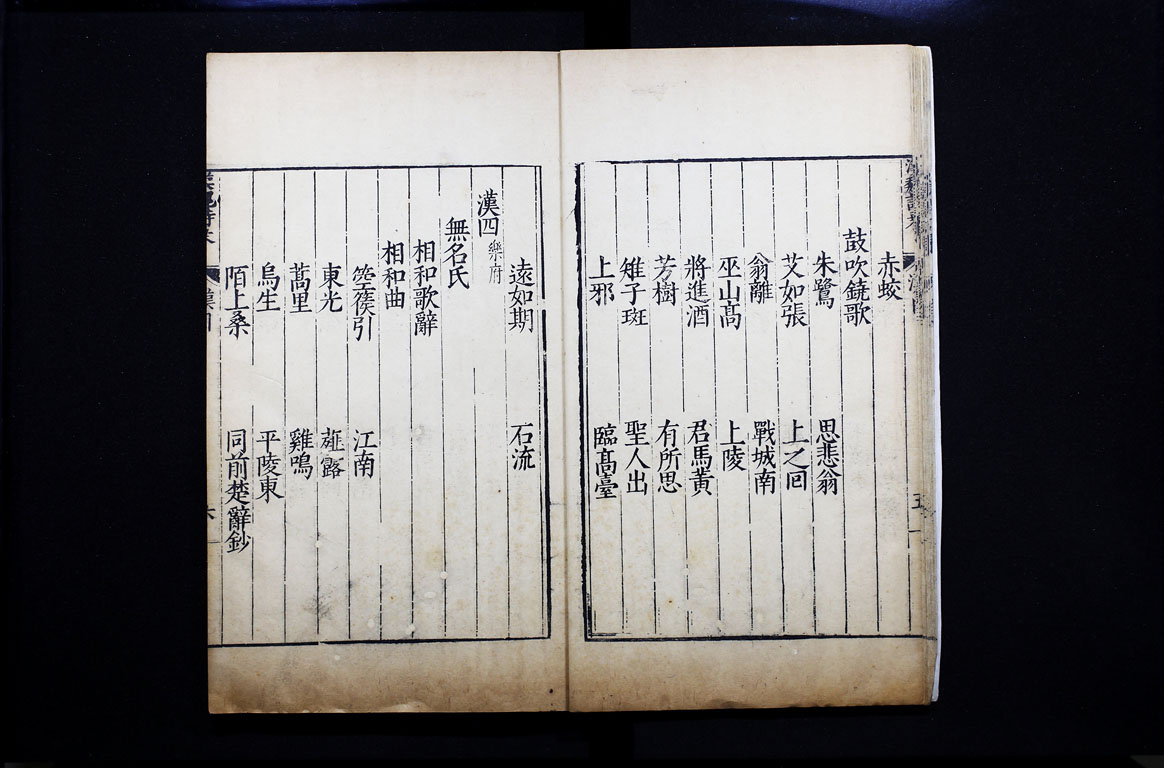 赤蛟
鼓吹鐃歌
朱鷺 思悲翁
艾如張 上之回
翁離 戰城南
巫山高 上陵
將進酒 君馬黃
芳樹 有所思
雉子斑 聖人出
上邪 臨高臺
遠如期 石流
漢四 樂府
無名氏
相和歌辭
相和曲
箜篌引 江南
東光 薤露
蒿里 雞鳴
烏生 平陵東
陌上桑 同前楚辭鈔